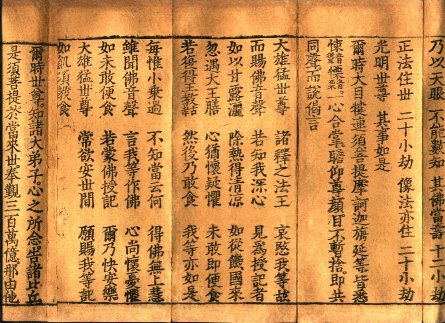 乃以天眼 不能數知 其佛當壽 十二小劫
正法住世 二十小劫 像法亦住 二十小劫
光明世尊 其事如是
爾時大目犍連須菩提摩訶迦旃延等皆悉
悚慄一心合掌瞻仰尊顏目不暫捨即共
同聲而說偈言
大雄猛世尊 諸釋之法王 哀愍我等故
而賜佛音聲 若知我深心 見為授記者
如以甘露灑 除熱得清涼 如從饑國來
忽遇大王膳 心猶懷疑懼 未敢即便食
若復得王教 然後乃敢食 我等亦如是
每惟小乘過 不知當云何 得佛無上慧
雖聞佛音聲 言我等作佛 心尚懷憂懼
如未敢便食 若蒙佛授記 爾乃快安樂
大雄猛世尊 常欲安世間 願賜我等記
如飢須教食
爾時世尊知諸大弟子心之所念告諸比丘
是須菩提於當來世奉覲三百萬億那由他